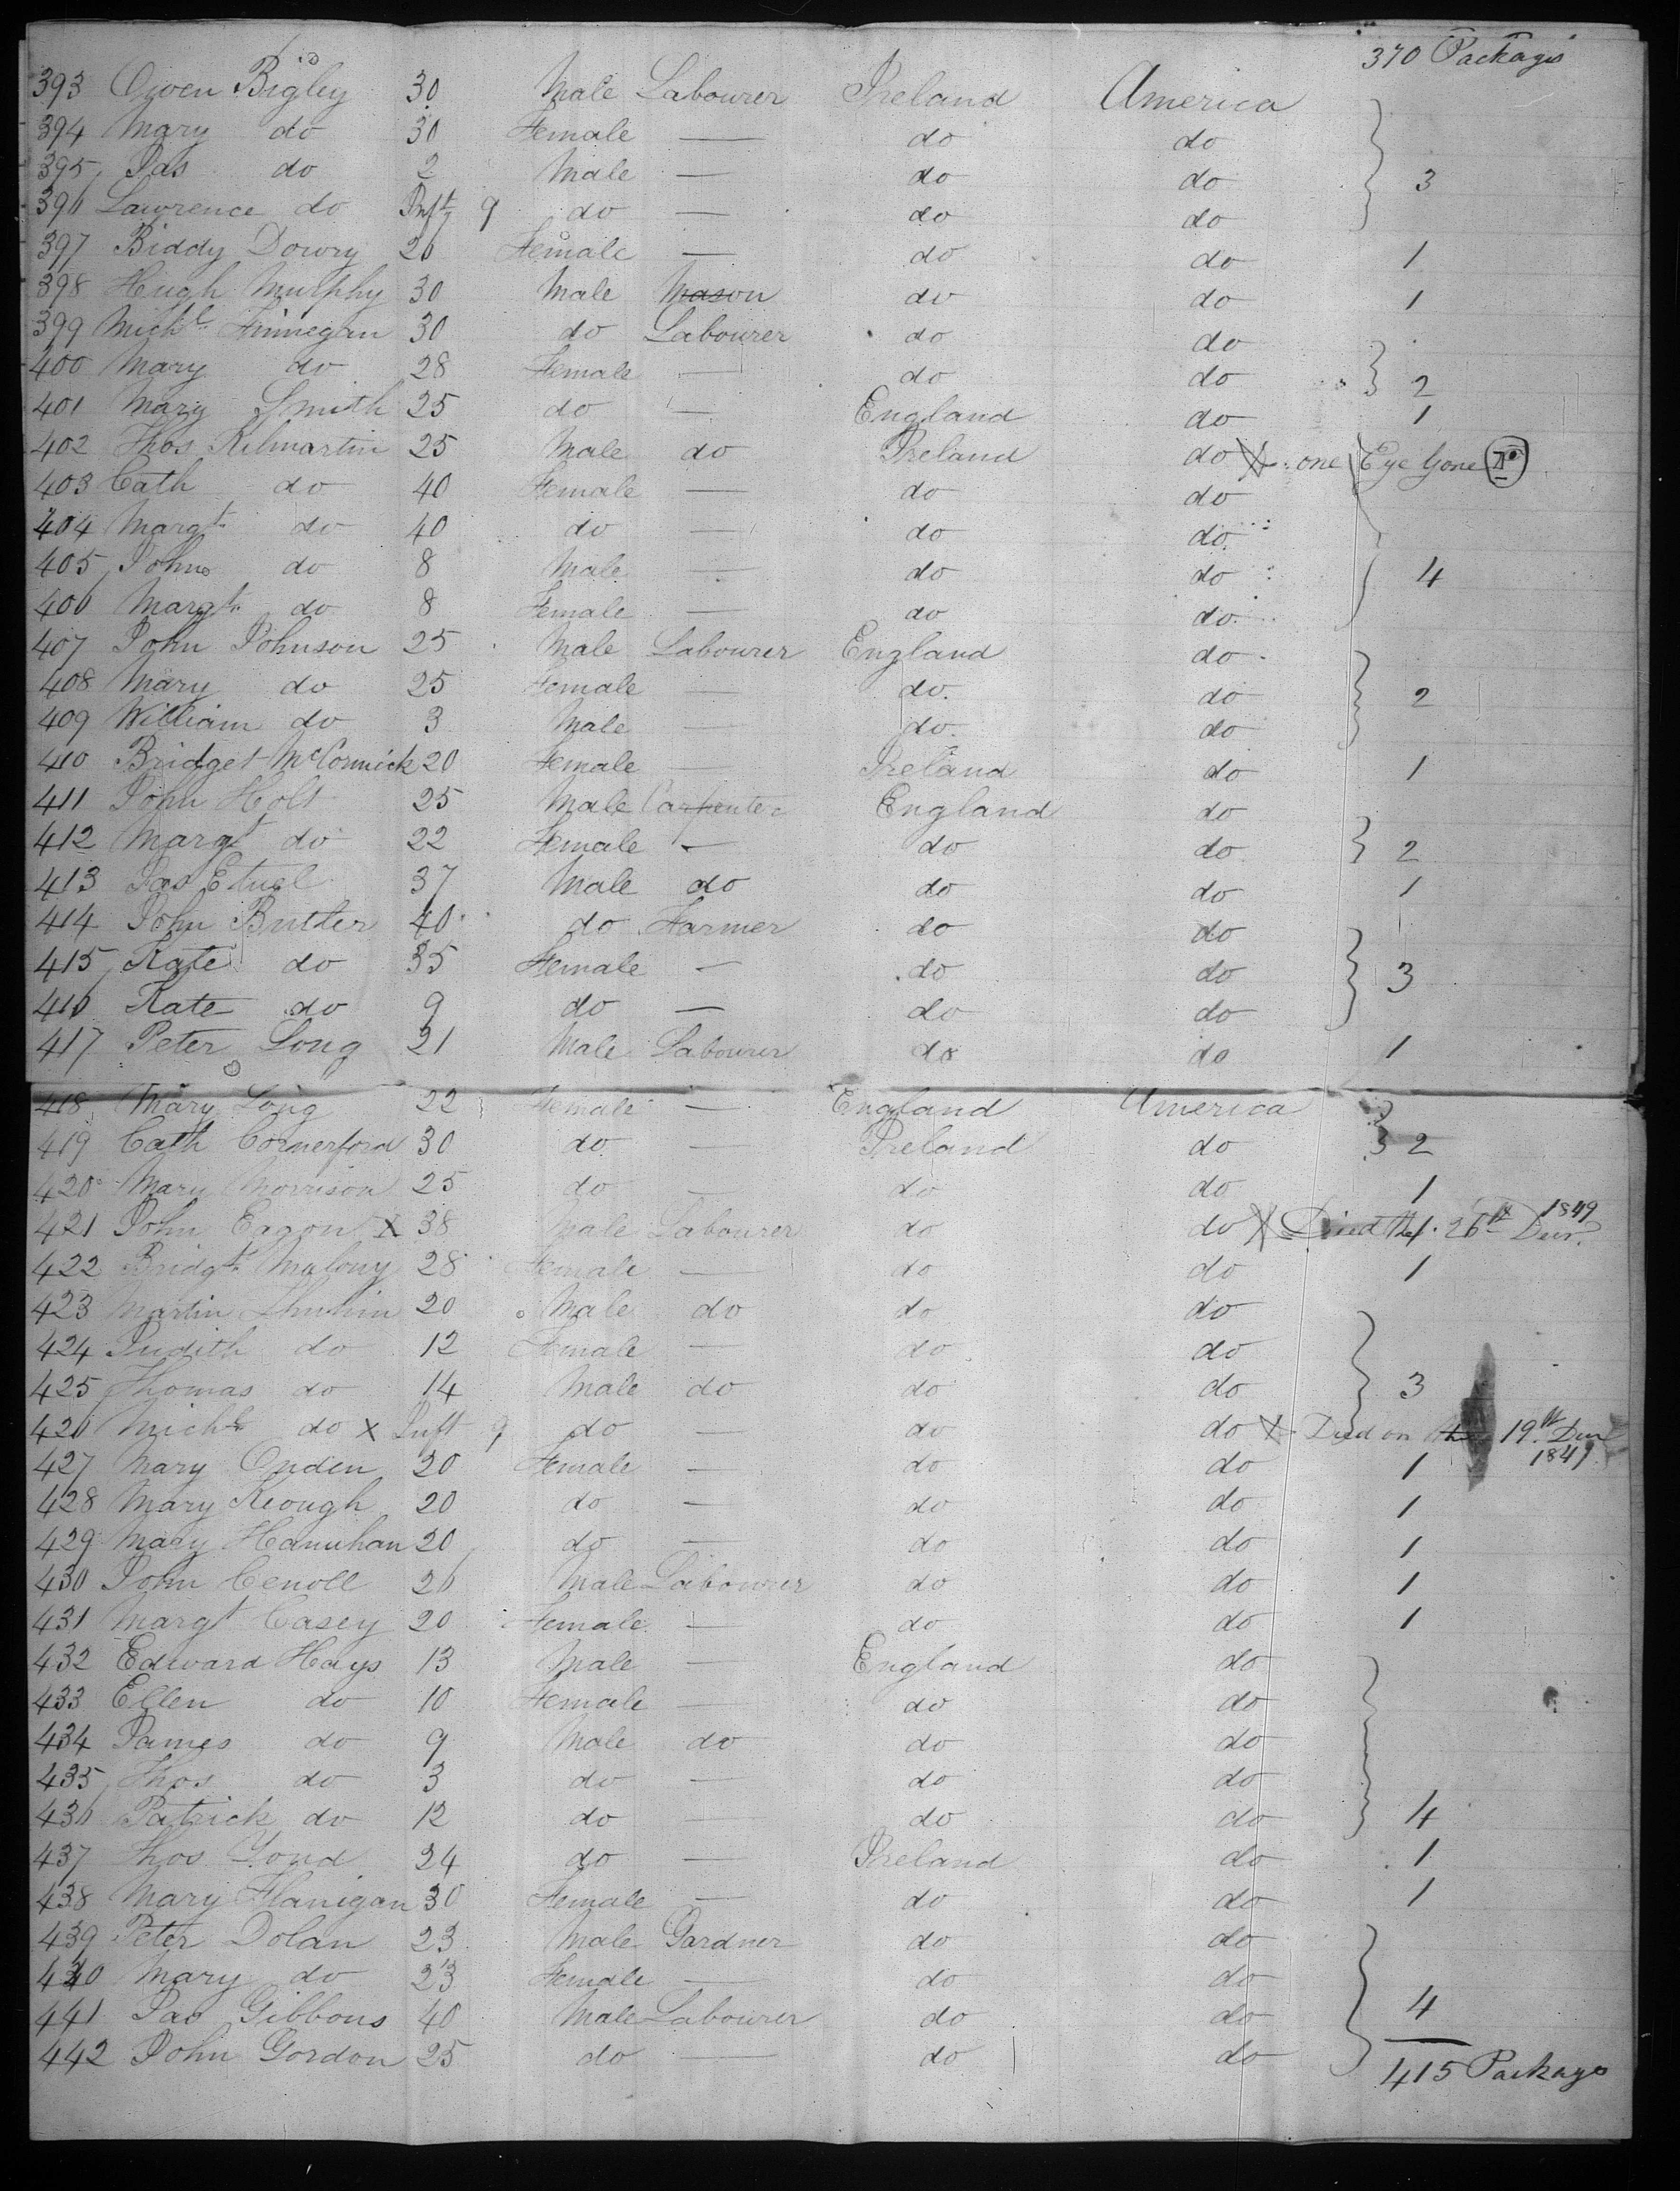 370 Packages
393 Owen Bigley 30 Male Labourer Ireland America
394 Mary do 30 Female — do do
395 Jas do 2 Male — do do 3
396 Lawrence do Inft 9 do — do do
397 Biddy Dowry 26 Female — do do 1
398 Hugh Murphy 30 Male Mason do do 1
399 Michl Finnegan 30 do Labourer do do
400 Mary do 28 Female — do do 2
401 Mary Smith 25 do — England do 1
402 Thos Kilmartin 25 Male do Ireland do X one Eye Gone
403 Cath do 40 Female — do do
404 Margt do 40 do — do do
405 John do 8 Male — do do 4
406 Margt do 8 Female — do do
407 John Johnson 25 Male Labourer England do
408 Mary do 25 Female — do do 2
409 William do 3 Male — do do
410 Bridget McCormick 20 Female — Ireland do 1
411 John Holt 25 Male Carpenter England do
412 Margt do 22 Female — do do 2
413 Jas 37 Male do do do 1
414 John Butler 40 do Farmer do do
415 Kate do 35 Female — do do 3
416 Kate do 9 do — do do
417 Peter Long 21 Male Labourer do do 1
418 Mary Long 22 Female — England America
419 Cath Comerford 30 do — Ireland do 2
420 Mary Morrison 25 do — do do 1
421 John Eagon X 38 Male Labourer do do X Died the 26th Decr. 1849
422 Bridgt Malony 28 Female — do do 1
423 Martin 20 Male do do do
424 Judith do 12 Female — do do
425 Thomas do 14 Male do do do 3
426 Michl do X Inft 9 do — do do X Died on the 19th Decr 1849
427 Mary 20 Female — do do 1
428 Mary Keough 20 do — do do 1
429 Mary Hanuhan 20 do — do do 1
430 John Cenoll 26 Male Labourer do do 1
431 Margt Casey 20 Female — do do 1
432 Edward Hays 13 Male — England do
433 Ellen do 10 Female — do do
434 James do 9 Male do do do
435 Thos do 3 do — do do
436 Patrick do 12 do — do do 4
437 Thos 24 do — Ireland do 1
438 Mary Flanigan 30 Female — do do 1
439 Peter Dolan 23 Male Gardner do do
440 Mary do 23 Female — do do
441 Jas Gibbons 40 Male Labourer do do 4
442 John Gordon 25 do — do do
415 Packages